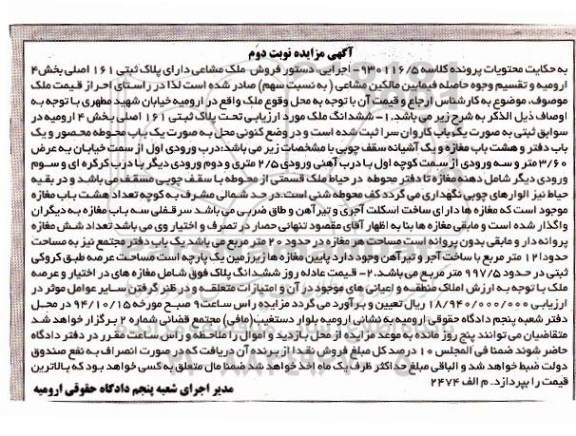 آگهی مزایده نوبت دوم
به حکایت محتویات پرونده کلاسه ۹۳۰۱۱۶/۵ اجرایی دستور فروش ملک مشاعی دارای پلاک ثبتی ۱۶۱ اصلی بخش ۴
ارومیه و تقسیم وجوه حاصله فیمابین مالکین مشاعی (به نسبت سهم) صادر شده است لذا در راستای احراز قیمت ملک
موصوف، موضوع به کارشناس ارجاع و قیمت آن با توجه به محل وقوع ملک واقع در ارومیه خیابان شهید مطهری با توجه به
اوصاف ذیل الذکر به شرح زیر می باشد. ۱- ششدانگ ملک مورد ارزیابی تحت پلاک ثبتی ۱۶۱ اصلی بخش ۴ ارومیه در
سوابق ثبتی به صورت یک باب کاروان سرا ثبت شده است و در وضع کنونی محل به صورت یک باب محوطه محصور و یک
باب دفتر و هشت باب مغازه و یک آشیانه سقف چوبی با مشخصات زیر می باشد: درب ورودی اول از سمت خیابان به عرض
۳/۶۰ متر و سه ورودی از سمت کوچه اول با درب آهنی ورودی ۲/۵ متری و دوم ورودی دیگر با درب کرکره ای و سوم
ورودی دیگر شامل دهنه مغازه تا دفتر محوطه در حیاط ملک قسمتی از محوطه با سقف چوبی مسقف می باشد و در بقیه
حیاط نیز الوارهای چوبی نگهداری می گردد کف محوطه شنی است. در حد شمالی مشرف به کوچه تعداد هشت باب مغازه
موجود است که مغازه ها دارای ساخت اسکلت آجری و تیرآهن و طاق ضربی می باشد سرقفلی سه باب مغازه به دیگران
واگذار شده است و مابقی مغازه ها بنا به اظهار آقای مقصود تنهائی حصار در تصرف و اختیار وی می باشد تعداد شش مغازه
پروانه دار و مابقی بدون پروانه است مساحت هر مغازه در حدود ۲۰ متر مربع می باشد یک باب دفتر مجتمع نیز به مساحت
حدود ۱۲ متر مربع با ساخت آجر و تیرآهن وجود دارد پایین مغازه ها زیرزمین یک پارچه است مساحت عرصه طبق کروکی
ثبتی در حدود ۹۹۷/۵ متر مربع می باشد. ۲- قیمت عادله روز ششدانگ پلاک فوق شامل مغازه های در اختیار و عرصه
ملک با توجه به ارزش املاک منطقه و اعیانی های موجود در آن و امتیازات متعلقه و در نظر گرفتن سایر عوامل موثر در
ارزیابی ۱۸/۹۴۰/۰۰۰/۰۰۰ ریال تعیین و برآورد می گردد مزایده راس ساعت ۹ صبح مورخه ۹۴/۱۰/۱۵ در محل
دفتر شعبه پنجم دادگاه حقوقی ارومیه به نشانی ارومیه بلوار دستغیب (مافی) مجتمع قضائی شماره ۲ برگزار خواهد شد
متقاضیان می توانند پنج روز مانده به موعد مزایده از محل بازدید و اموال را ملاحظه و راس ساعت مقرر در دفتر دادگاه
حاضر شوند ضمنا فی المجلس ۱۰ درصد کل مبلغ فروش نقدا از برنده آن دریافت که در صورت انصراف به نفع صندوق
دولت ضبط خواهد شد و الباقی مبلغ حداکثر ظرف یک ماه اخذ خواهد شد ضمنا مال متعلق به کسی خواهد بود که بالاترین
قیمت را بپردازد. م الف ۲۴۷۴
مدیر اجرای شعبه پنجم دادگاه حقوقی ارومیه